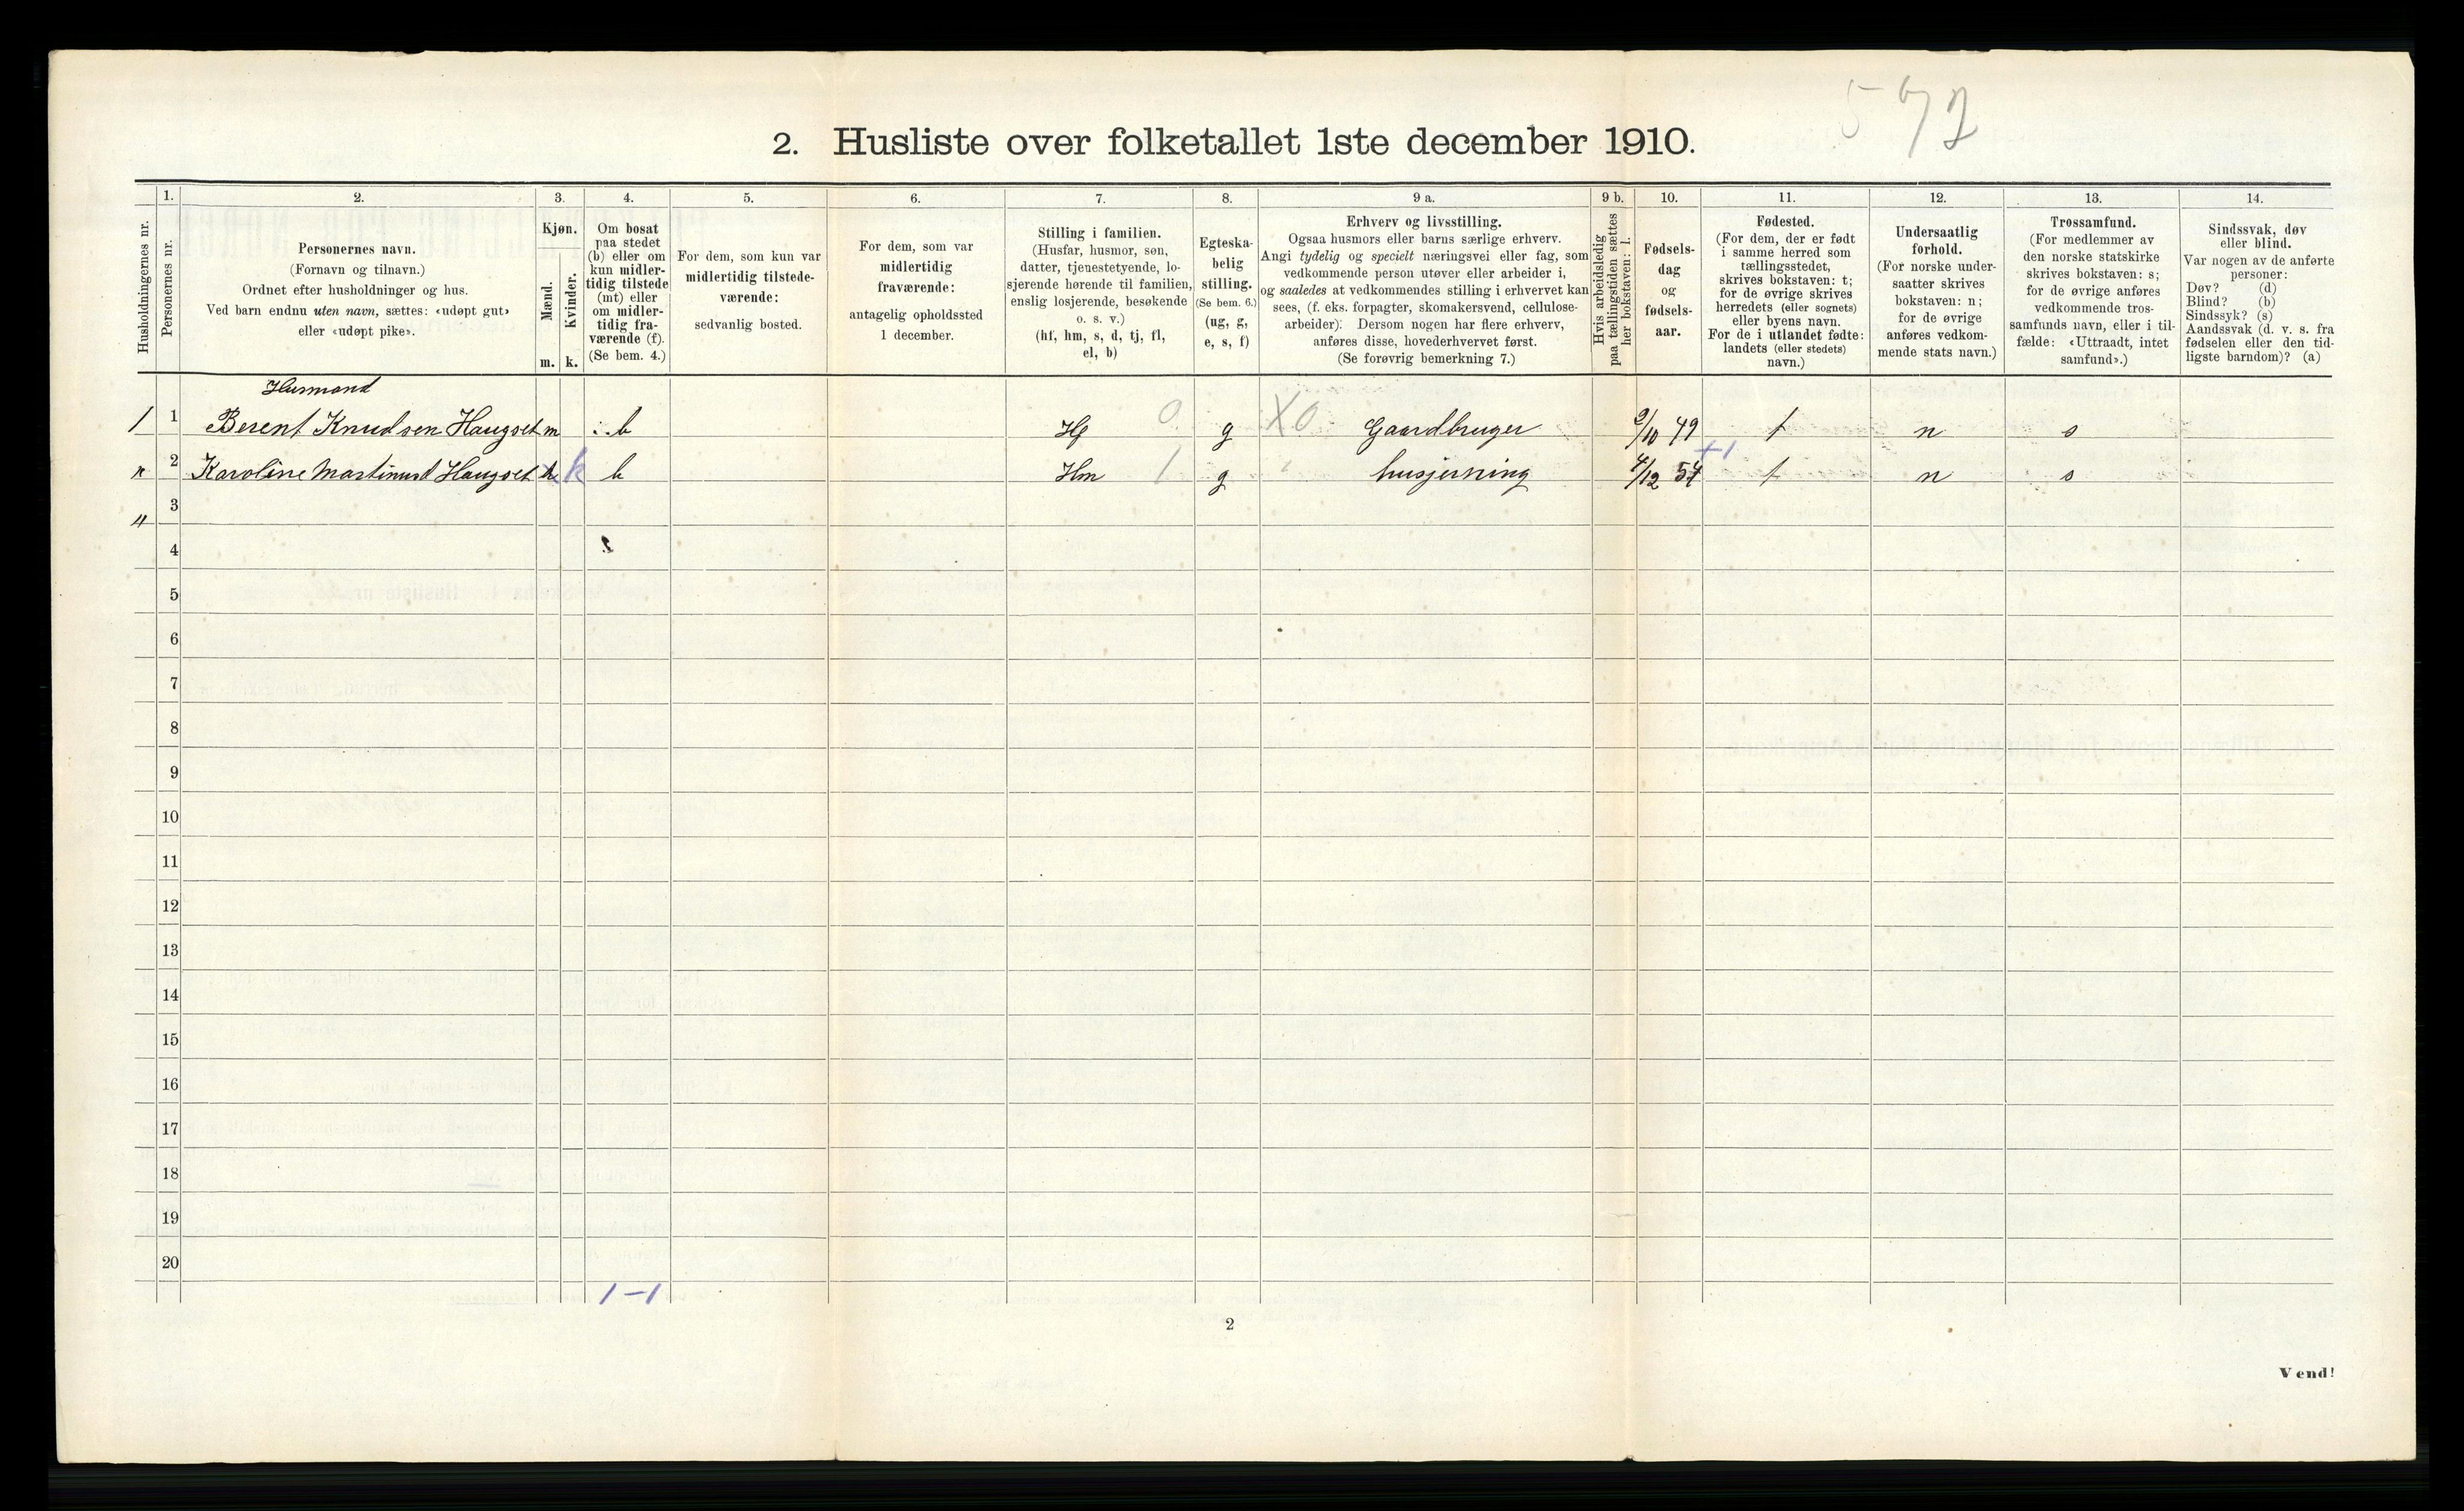 572
2. Husliste over folketallet 1ste december 1910.
Husholdningernes nr.
1.
Personernes nr.
2.
Personernes navn.
(Fornavn og tilnavn.)
Ordnet efter husholdninger og hus.
Ved barn endnu uten navn, sættes: «udøpt gut»
eller «udøpt pike».
3.
Kjøn.
Mænd.
m.
Kvinder.
k.
4.
Om bosat
paa stedet
(b) eller om
kun midler-
tidig tilstede
(mt) eller
om midler-
tidig fra-
værende (f).
(Se bem. 4.)
5.
For dem, som kun var
midlertidig tilstede-
værende:
sedvanlig bosted.
6.
For dem, som var
midlertidig
fraværende:
antagelig opholdssted
1 december.
7.
Stilling i familien.
(Husfar, husmor, søn,
datter, tjenestetyende, lo-
sjerende hørende til familien,
enslig losjerende, besøkende
o. s. v.)
(hf, hm, s, d, tj, fl,
el, b)
8.
Egteska-
belig
stilling.
(Se bem. 6.)
(ug, g,
e, s, f)
9 a.
Erhverv og livsstilling.
Ogsaa husmors eller barns særlige erhverv.
Angi tydelig og specielt næringsvei eller fag, som
vedkommende person utøver eller arbeider i,
og saaledes at vedkommendes stilling i erhvervet kan
sees, (f. eks. forpagter, skomakersvend, cellulose-
arbeider). Dersom nogen har flere erhverv,
anføres disse, hovederhvervet først.
(Se forøvrig bemerkning 7.)
9 b.
Hvis arbeidsledig
paa tællingstiden sættes
her bokstaven: l.
10.
Fødsels-
dag
og
fødsels-
aar.
11.
Fødested.
(For dem, der er født
i samme herred som
tællingsstedet,
skrives bokstaven: t;
for de øvrige skrives
herredets (eller sognets)
eller byens navn.
For de i utlandet fødte:
landets (eller stedets)
navn.)
12.
Undersaatlig
forhold.
(For norske under-
saatter skrives
bokstaven: n;
for de øvrige
anføres vedkom-
mende stats navn.)
13.
Trossamfund.
(For medlemmer av
den norske statskirke
skrives bokstaven: s;
for de øvrige anføres
vedkommende tros-
samfunds navn, eller i til-
fælde: «Uttraadt, intet
samfund».)
14.
Sindssvak, døv
eller blind.
Var nogen av de anførte
personer:
Døv? (d)
Blind? (b)
Sindssyk? (s)
Aandssvak (d. v. s. fra
fødselen eller den tid-
ligste barndom)? (a)
Husmand
1 1 Berent Knudsen Haugset m b Hf 0 g X0 Gaardbruger 9/10 49 t n s
2 Karoline Martinusd Haugset k k b Hm 1 g husjerning 4/12 54 +1 t n s
3
4
5
6
7
8
9
10
11
12
13
14
15
16
17
18
19
20
1-1
2
Vend!